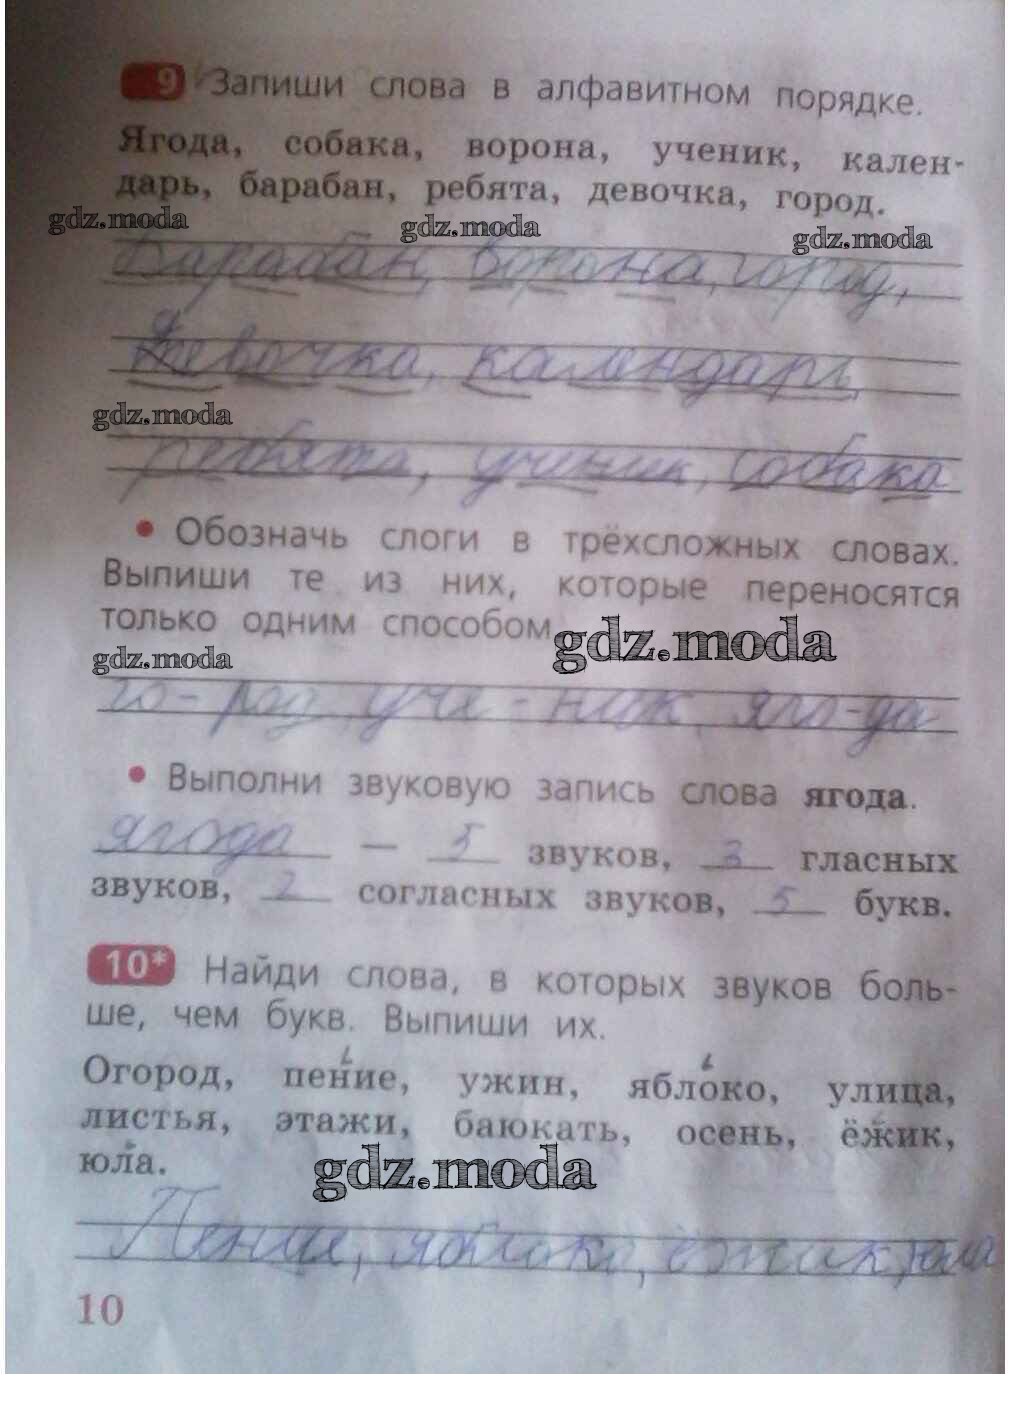 9 Запиши слова в алфавитном порядке.
Ягода, собака, ворона, ученик, кален-
дарь, барабан, ребята, девочка, город.
gdz.moda gdz.moda gdz.moda
Барабан, ворона, город,
девочка, календарь,
gdz.moda
ребята, ученик, собака
• Обозначь слоги в трёхсложных словах.
Выпиши те из них, которые переносятся
только одним способом.
gdz.moda gdz.moda
го-род, уче-ник, яго-да
• Выполни звуковую запись слова ягода.
ягода — 5 звуков, 3 гласных
звуков, 2 согласных звуков, 5 букв.
10* Найди слова, в которых звуков боль-
ше, чем букв. Выпиши их.
Огород, пение, ужин, яблоко, улица,
листья, этажи, баюкать, осень, ёжик,
юла.
gdz.moda
Пение, яблоко, ёжик, юла
10